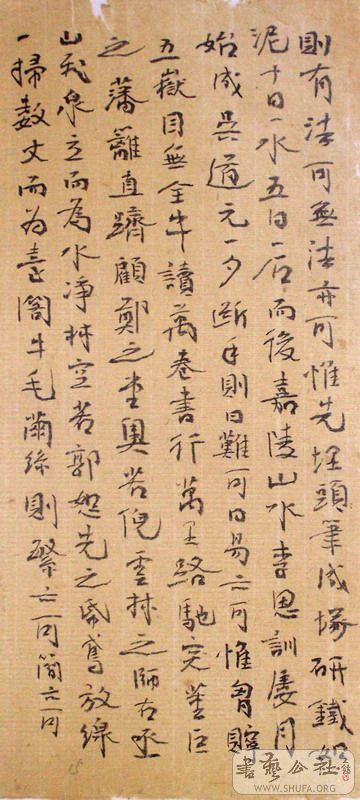 則有法可無法亦可惟先埋頭筆成塚研鐵如
泥十日一水五日一石而後嘉陵山水李思訓屡月
始成吳道元一夕斷手則曰難可曰易亦可惟胷貯
五嶽目無全牛讀萬卷書行萬里路馳突董巨
之藩籬直躋顧鄭之堂奥若倪雲林之師右丞
山飛泉立而為水净林空若郭恕先之帋鳶放線
一掃數丈而為臺閣牛毛繭絲則繁亦可簡亦可
書藝公社
WWW.SHUFA.ORG